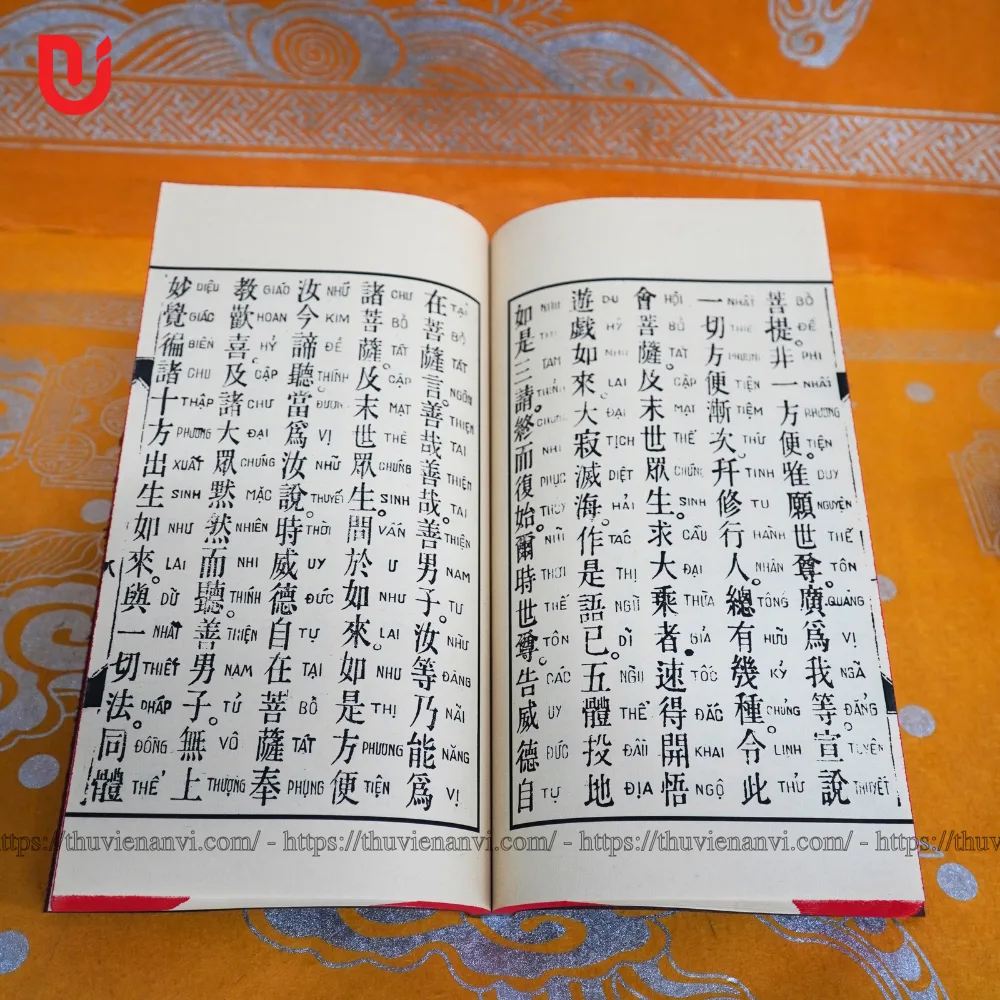 菩提。非一方便。唯願世尊。廣爲我等宣說
BỒ ĐỀ PHI NHẤT PHƯƠNG TIỆN DUY NGUYỆN THẾ TÔN QUẢNG VỊ NGÃ ĐẲNG TUYÊN THUYẾT
一切方便漸次。幷修行人。總有幾種。令此
NHẤT THIẾT PHƯƠNG TIỆN TIỆM THỨ TINH TU HÀNH NHÂN TỔNG HỮU KỶ CHỦNG LINH THỬ
會菩薩。及末世眾生。求大乘者。速得開悟
HỘI BỒ TÁT CẬP MẠT THẾ CHÚNG SINH CẦU ĐẠI THỪA GIẢ TỐC ĐẮC KHAI NGỘ
遊戲如來。大寂滅海。作是語已。五體投地
DU HÝ NHƯ LAI ĐẠI TỊCH DIỆT HẢI TÁC THỊ NGỮ DĨ NGŨ THỂ ĐẦU ĐỊA
如是三請。終而復始。爾時世尊。告威德自
NHƯ THỊ TAM THỈNH CHUNG NHI PHỤC THỦY NHĨ THỜI THẾ TÔN CÁO UY ĐỨC TỰ
在菩薩言。善哉善哉。善男子。汝等乃能爲
TẠI BỒ TÁT NGÔN THIỆN TAI THIỆN TAI THIỆN NAM TỬ NHỮ ĐẲNG NÃI NĂNG VỊ
諸菩薩。及末世眾生。問於如來。如是方便
CHƯ BỒ TÁT CẬP MẠT THẾ CHÚNG SINH VẤN Ư NHƯ LAI NHƯ THỊ PHƯƠNG TIỆN
汝今諦聽。當爲汝說。時威德自在菩薩奉
NHỮ KIM ĐẾ THÍNH ĐƯƠNG VỊ NHỮ THUYẾT THỜI UY ĐỨC TỰ TẠI BỒ TÁT PHỤNG
教歡喜。及諸大眾默然而聽。善男子。無上
GIÁO HOAN HỶ CẬP CHƯ ĐẠI CHÚNG MẶC NHIÊN NHI THÍNH THIỆN NAM TỬ VÔ THƯỢNG
妙覺徧諸十方出生如來。與一切法。同體
DIỆU GIÁC BIẾN CHƯ THẬP PHƯƠNG XUẤT SINH NHƯ LAI DỮ NHẤT THIẾT PHÁP ĐỒNG THỂ
https://thuvienanvi.com/ - https://thuvienanvi.com/ - https://thuvienanvi.com/ - https://thuv